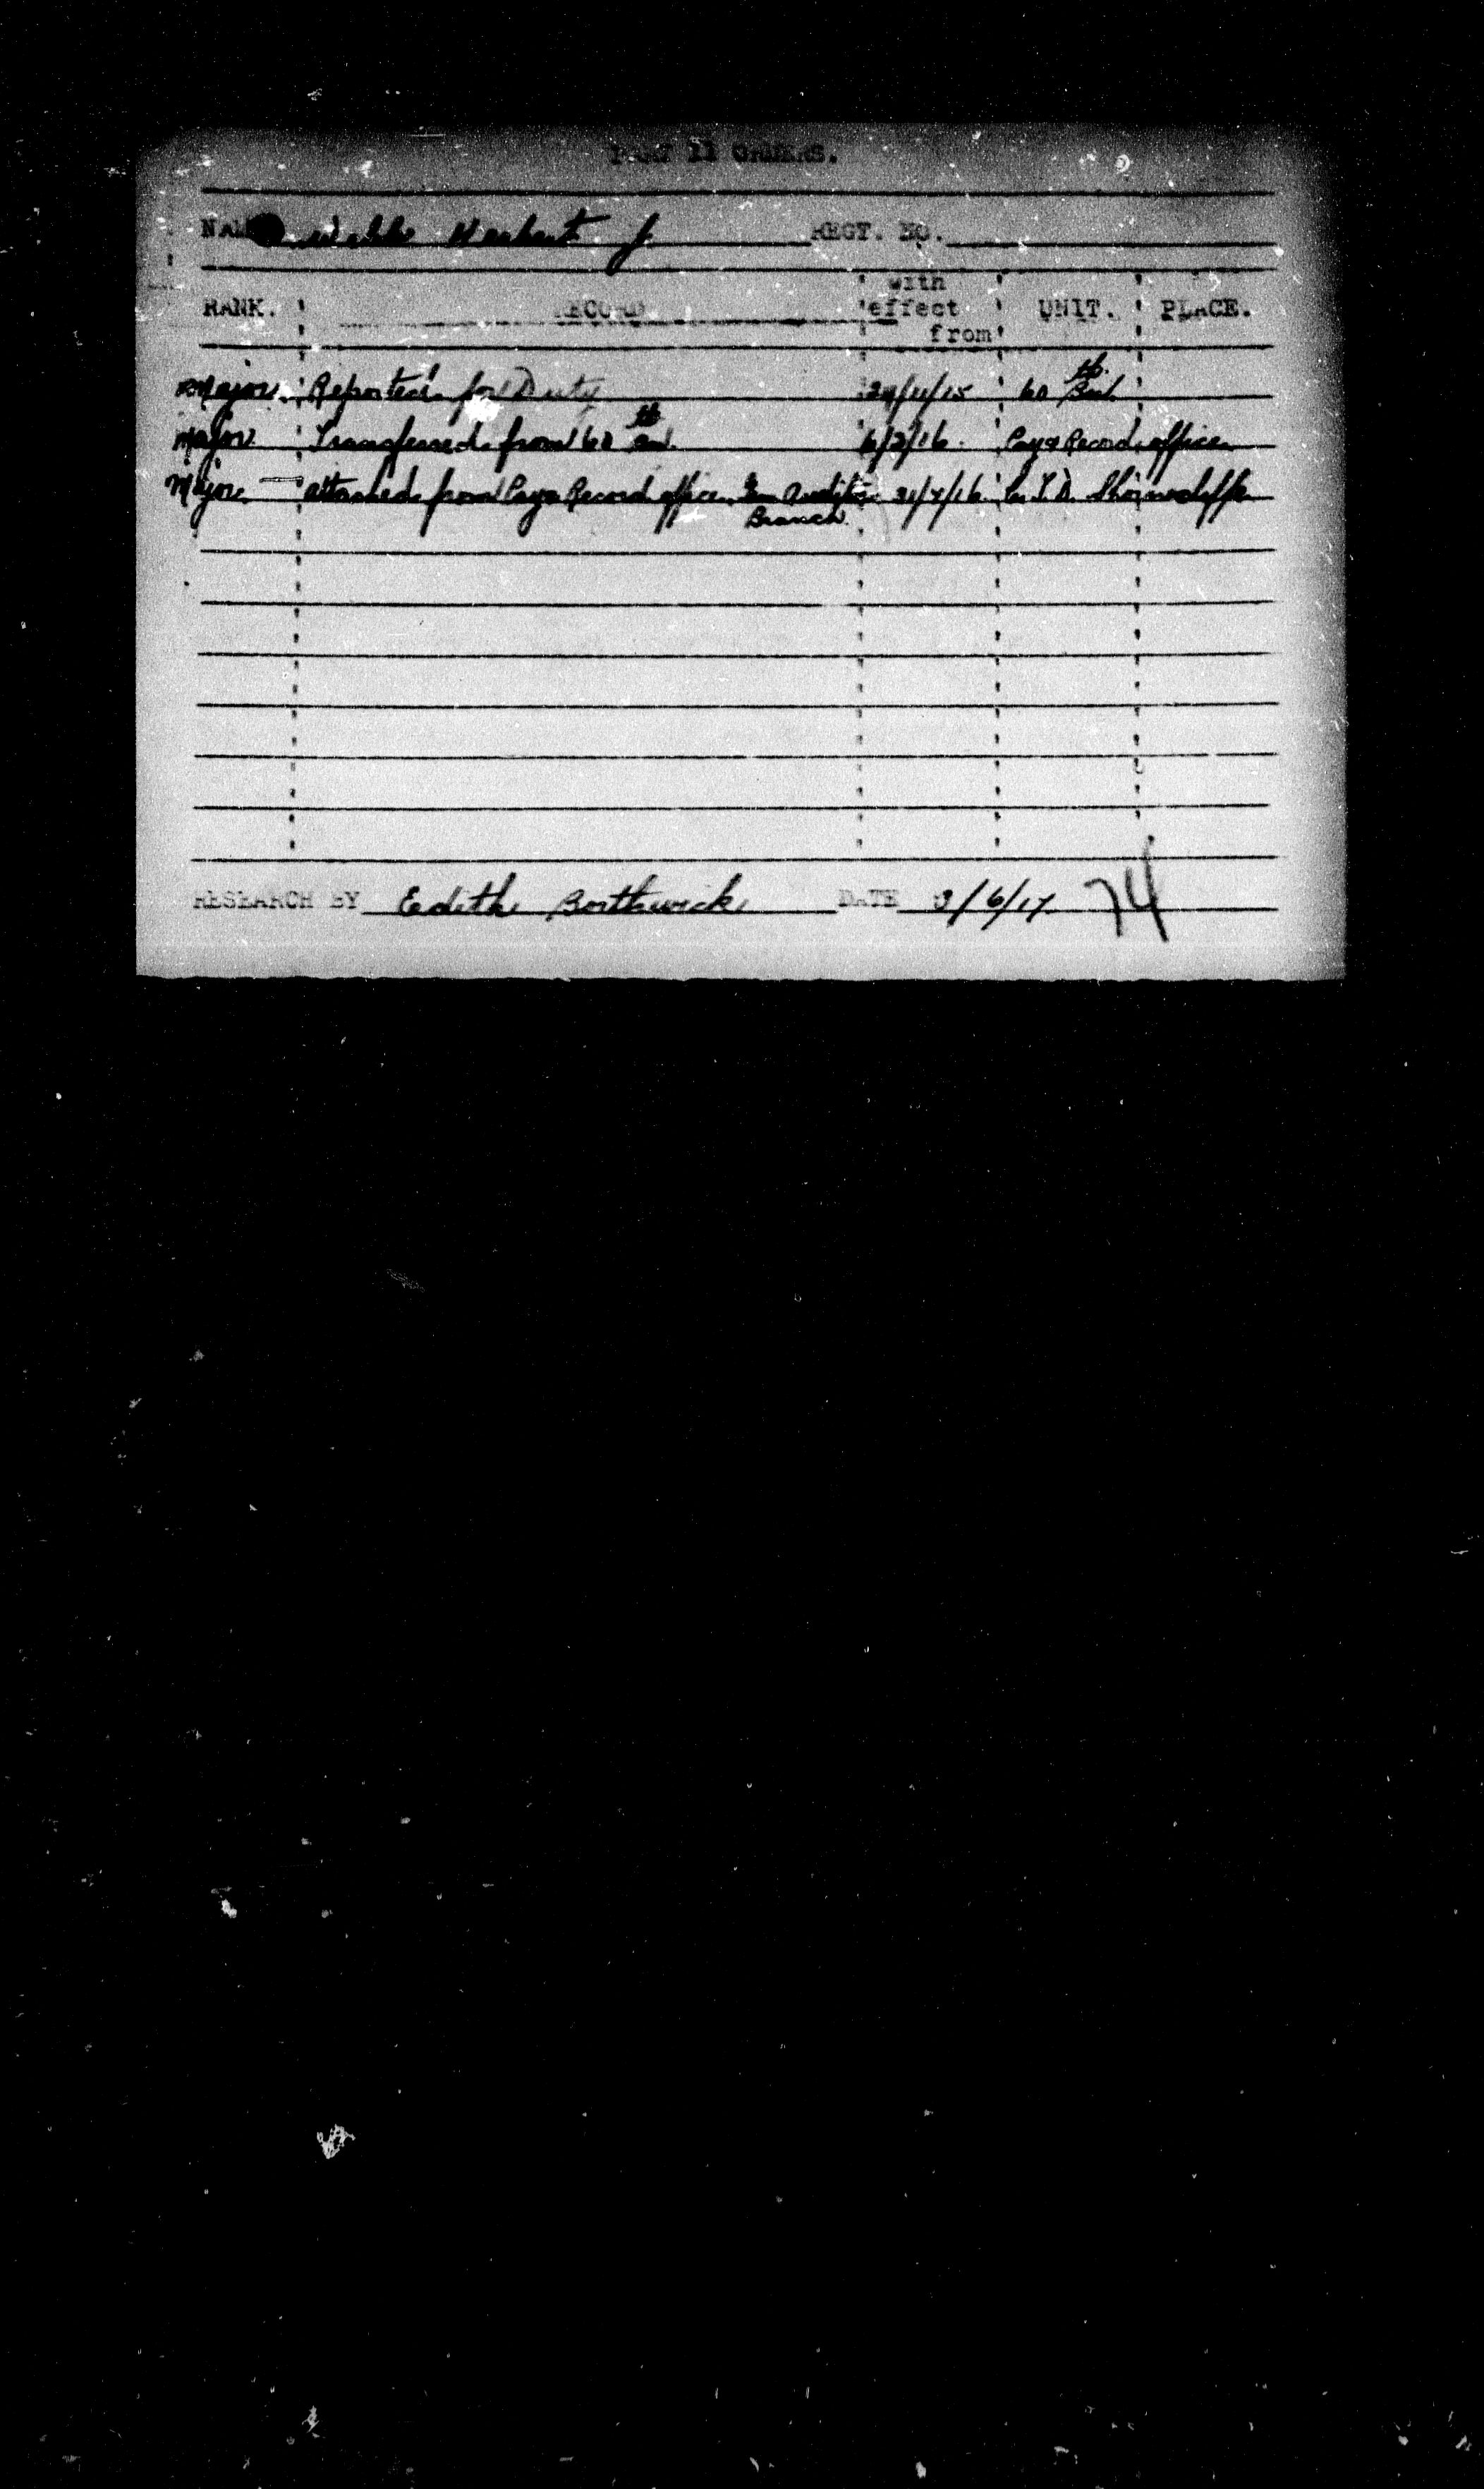 PART II ORDERS.
NAME Webb Herbert J REGT. NO.
RANK. RECORD with effect from UNIT. PLACE.
Major Reported for Duty 24/11/15 60th Bn
Major Transferred from 60th Bn. 6/2/16. Pay & Record office
Major attached from Pay & Record office to Audit 31/7/16 C.T.D. Shorncliffe
Branch
RESEARCH BY Edith Borthwick DATE 9/6/17 74